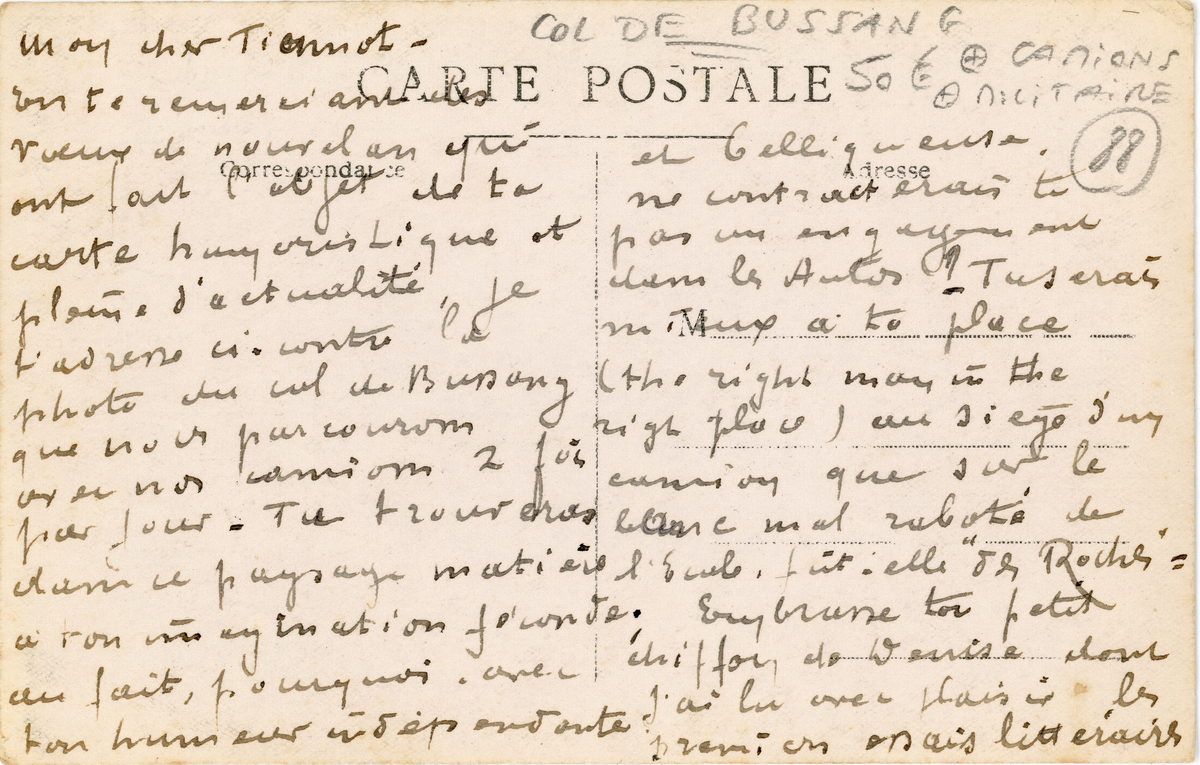 COL DE BUSSANG
50 € ⊕ CAMIONS
⊕ MILITAIRE
88
CARTE POSTALE
Correspondance
Adresse
M
Mon cher Tiennot -
En te remerciant des
vœux de nouvel an qui
ont fait l'objet de ta
carte humoristique et
pleine d'actualité, je
t'adresse ci-contre la
photo du col de Bussang
que nous parcourons
avec nos camions 2 fois
par jour - Tu trouveras
dans ce paysage matière
à ton imagination féconde.
au fait, pourquoi, avec
ton humeur indépendante
et belliqueuse,
ne contracterais tu
pas un engagement
dans les Autos ? Tu serais
mieux à ta place
(the right man in the
right place) au siège d'un
camion que sur le
banc mal raboté de
l'Ecole, fût-elle "des Roches" =
Embrasse ton petit
chiffon de Denise dont
j'ai lu avec plaisir les
premiers essais littéraires